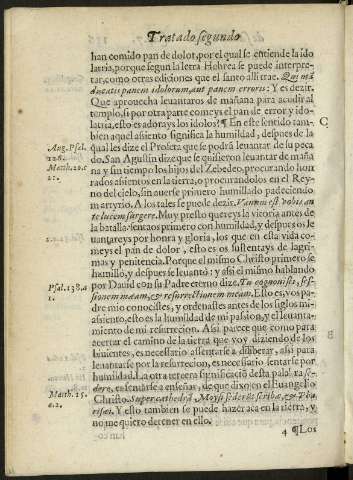 Tratado segundo
han comido pan de dolor, por el qual se entiende la ido
latria, porque segun la letra Hebrea se puede interpre-
tar, como otras ediciones que el santo alli trae. Qui mã
ducatis panem idolorum, aut panem erroris: Y es dezir.
Que aprouecha leuantaros de mañana para acudir al
templo, si por otra parte comeys el pan de error y ido-
latria, esto es adorays los idolos? ¶ En este sentido tam-
bien aquel asiento significa la humildad, despues de la
qual les dize el Profeta que se podrã leuantar de su peca
do. San Agustin dize que se quisieron leuantar de mañá
na y sin tiempo los hijos del Zebedeo, procurando hon
rados asientos en la tierra, o procurandolos en el Rey-
no del cielo, sin auerse primero humillado padeciendo
martyrio. A los tales se puede dezir. Vanum est vobis an
te lucem surgere. Muy presto quereys la vitoria antes de
la batalla: sentaos primero con humildad, y despues os le
uantareys por honra y gloria, los que en esta vida co-
meys el pan de dolor, esto es os sustentays de lagri-
mas y penitencia. Porque el mismo Christo primero se
humilló, y despues se leuantó: y asi el mismo hablando
por Dauid con su Padre eterno dize. Tu cognouiste, se-
ssionem meam, & resurrectionem meam. Esto es, vos pa-
dre mio conocistes, y ordenastes antes de los siglos mi
asiento, esto es la humildad de mi pasion, y el leuanta-
miento de mi resurrecion. Asi parece que como para
acertar el camino de la tierra que voy diziendo de los
binientes, es necessario assentarse a diliberar, asi para
leuantarse por la resurrecion, es necessario sentarse por
humildad. La otra tercera significaciõ desta palabra se-
dere, es sentarse a enseñar, de que dixo en el Euangelio
Christo. Super cathedrã, Moysi sederũt scribæ, & Pha
risæi. Y esto tambien se puede hazer aca en la tierra, y
no me quiero detener en ello.
4 ¶ Los
C
Aug. Psal.
126.
Matth. 20.
Psal. 138. a
1.
Matth. 23.
a. 2.